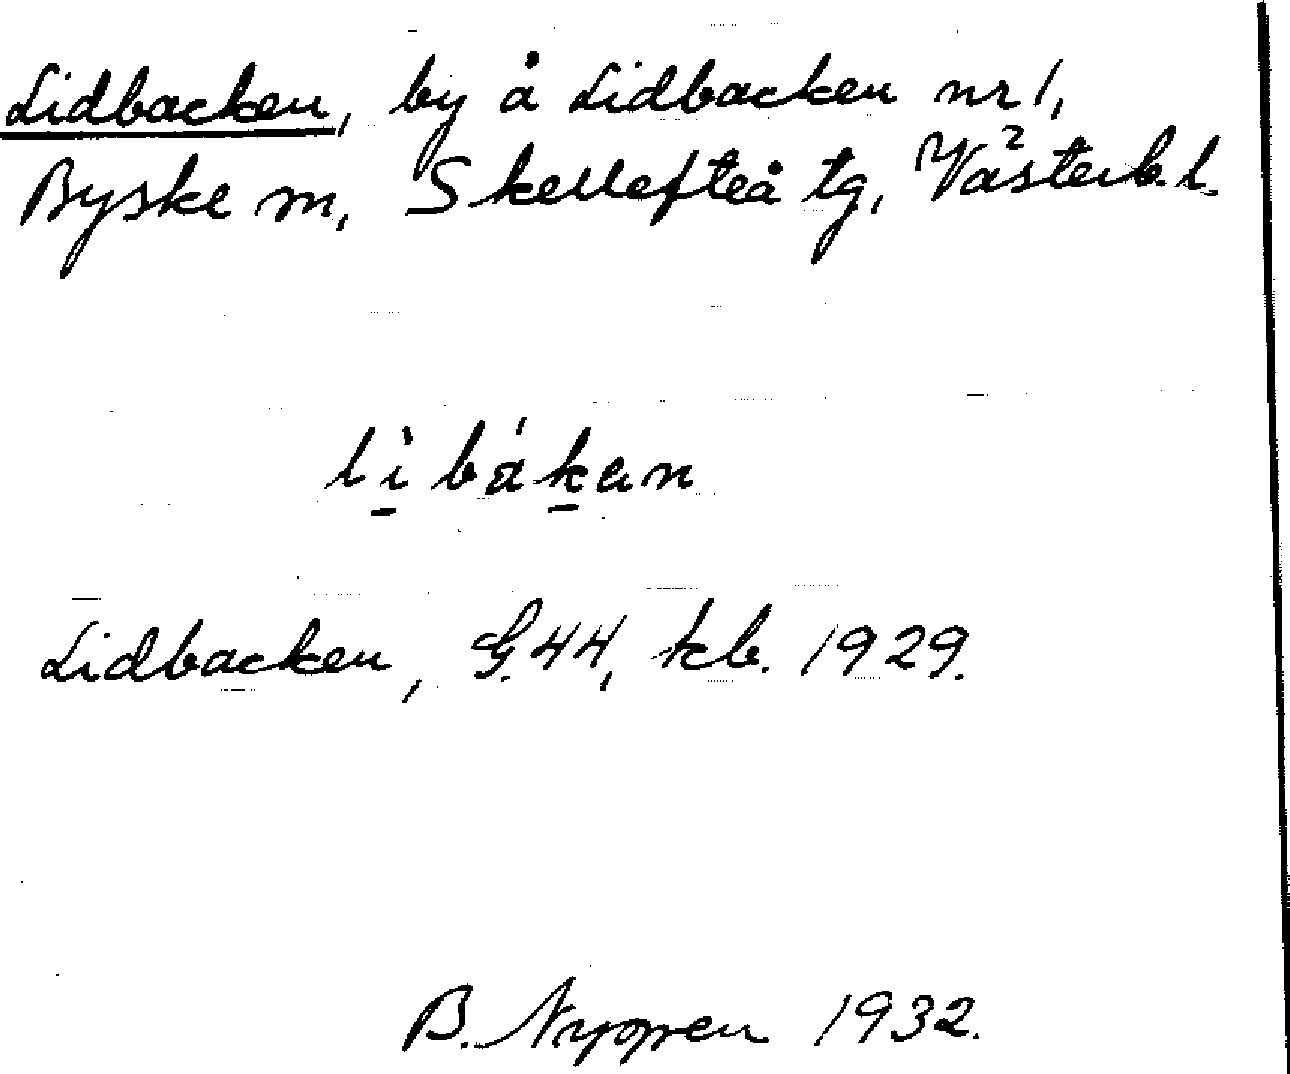 Lidbacken, by å Lidbacken nr 1,
Byske sn, Skellefteå tg, Västerb. l.
lì bákan
Lidbacken, G. 44, kb. 1929.
B. 1932.